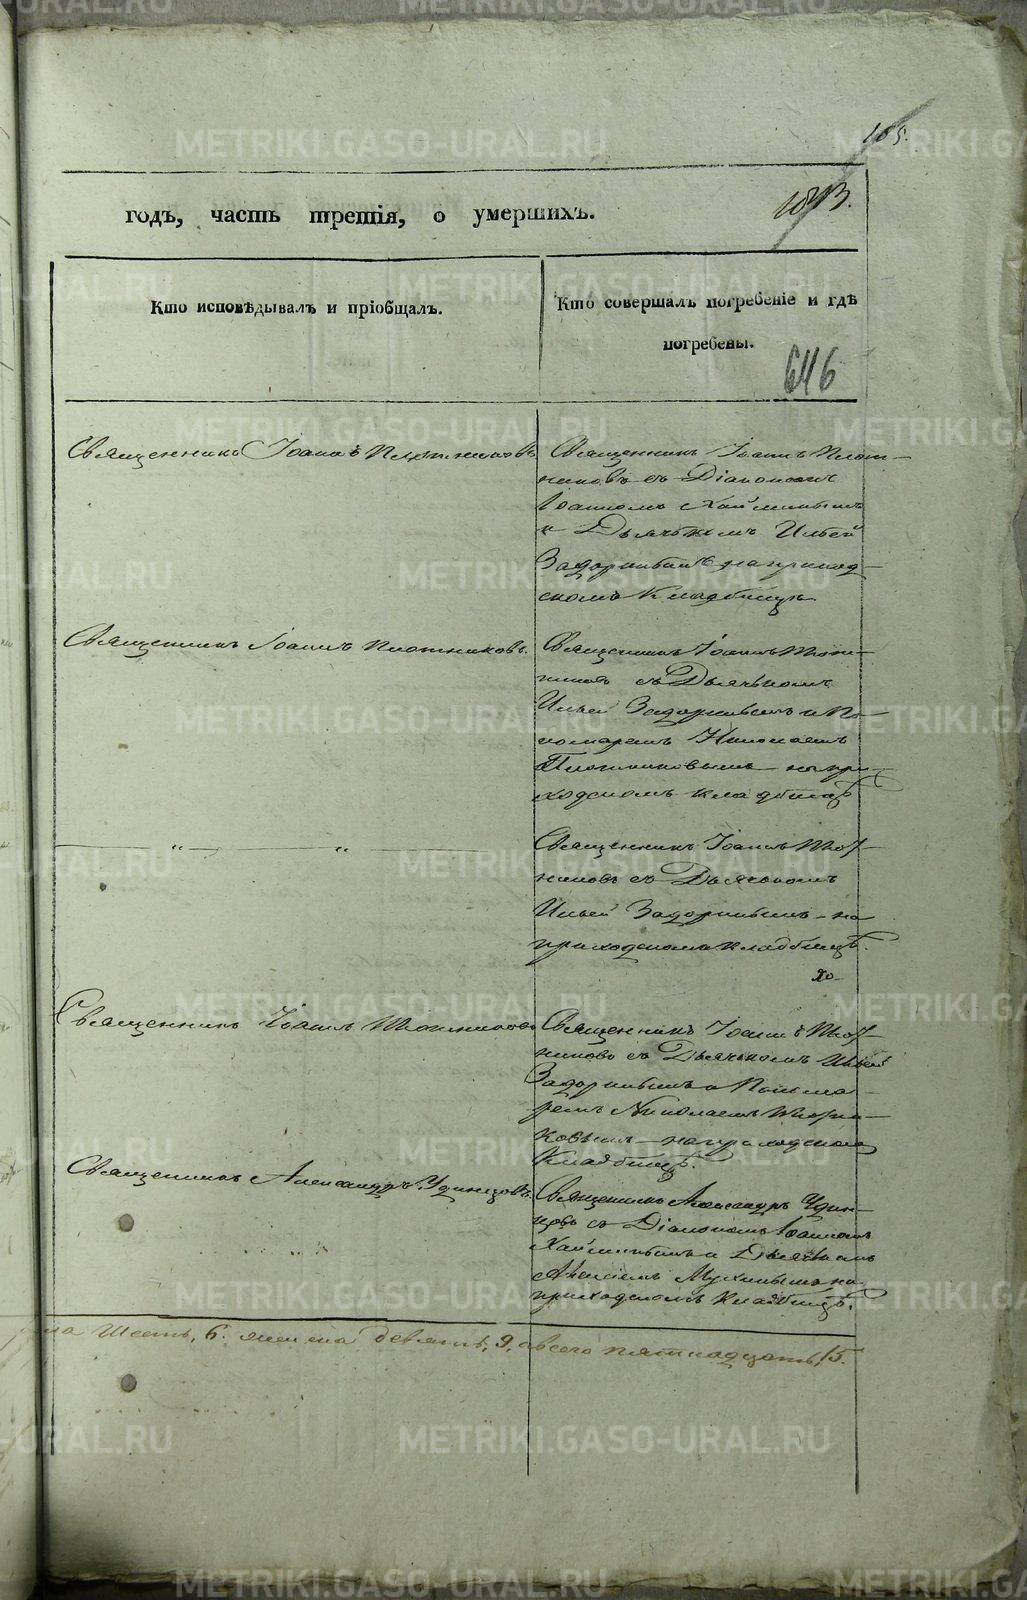 165.
годъ, часть третія, о умершихъ.
Кто исповѣдывалъ и пріобщалъ.
Кто совершалъ погребеніе и гдѣ
погребены.
646
Священникъ Іоаннъ Плотниковъ
Священникъ Іоаннъ Плот-
никовъ съ Діакономъ
Іоанномъ
и Дьячкомъ Ильей
Задоринымъ на приход-
скомъ кладбищѣ
Священникъ Іоаннъ Плотниковъ.
Священникъ Іоаннъ Плот-
никовъ съ Дьячкомъ
Ильей Задоринымъ и По-
номаремъ Николаемъ
Плотниковымъ на при-
ходскомъ кладбищѣ
" "
Священникъ Іоаннъ Плот-
никовъ съ Дьячкомъ
Ильей Задоринымъ на
приходскомъ кладбищѣ.
Священникъ Іоаннъ Плотниковъ
Священникъ Іоаннъ Плот-
никовъ съ Дьячкомъ Ильей
Задоринымъ и Понома-
ремъ Николаемъ Плотни-
ковымъ на приходскомъ
кладбищѣ.
Священникъ Александръ Удинцовъ.
Священникъ Александръ Удин-
цовъ съ Діакономъ Іоанномъ
и Дьячкомъ
на
приходскомъ кладбищѣ.
Шесть, 6. женска девять, 9, а всего пятнадцать, 15.
METRIKI.GASO-URAL.RU